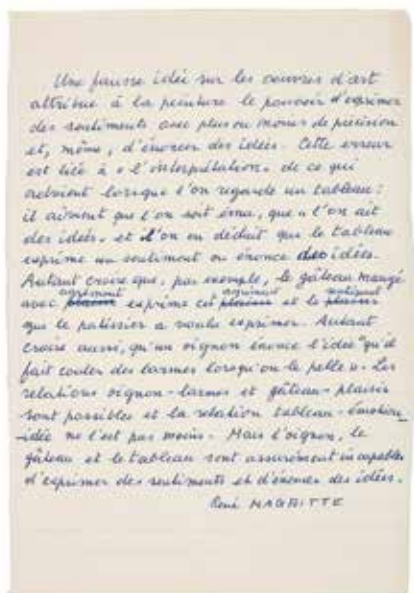 Une fausse idée sur les oeuvres d'art
attribue à la peinture le pouvoir d'exprimer
des sentiments avec plus ou moins de précision
et, même, d'énoncer des idées. Cette erreur
est liée à « l'interprétation » de ce qui
advient lorsque l'on regarde un tableau :
il advient que l'on soit ému, que « l'on ait
des idées » et l'on en déduit que le tableau
exprime un sentiment ou énonce des idées.
Autant croire que, par exemple, le gâteau mangé
agrément agrément sentiment
avec plaisir exprime cet plaisir et le plaisir
que le patissier a voulu exprimer. Autant
croire aussi, qu'un oignon énonce l'idée "qu'il
fait couler des larmes lorsqu'on le pelle ». Les
relations oignon-larmes et gâteau-plaisir
sont possibles et la relation tableau-émotion-
-idée ne l'est pas moins. Mais l'oignon, le
gâteau et le tableau sont assurément incapables
d'exprimer des sentiments et d'énoncer des idées.
René MAGRITTE